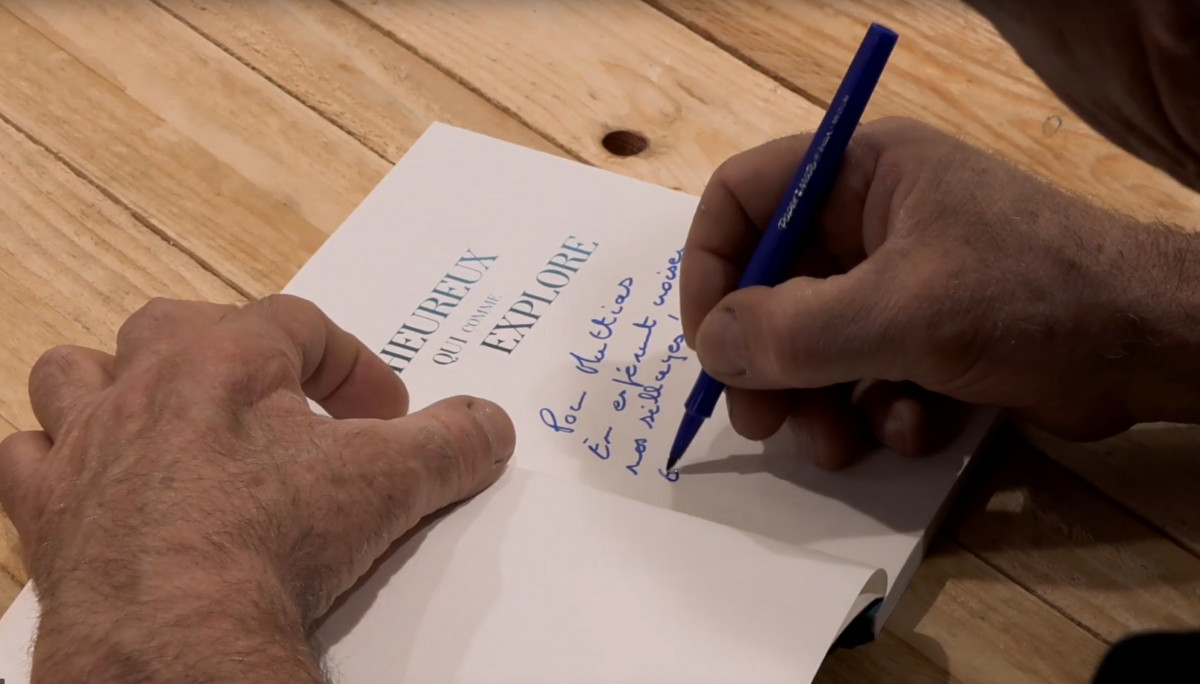 HEUREUX
QUI COMME
EXPLORE
Pour Mathias
En espérant croiser
nos sillages !
Paper Mate